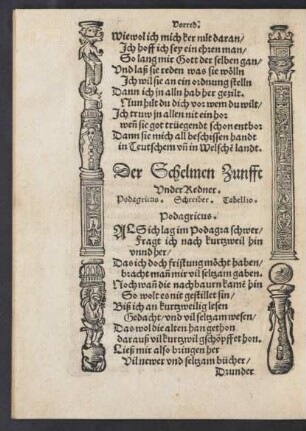 Vorred.
Wiewol ich mich ker nit daran /
Ich hoff ich sey ein ehren man /
So lang mir Gott der selben gan /
Vnd laß sie reden was sie wölln
Ich wil sie an ein ordnung stelln
Dann ich jn alln hab her gezilt.
Nun hilt du dich vor wem du wilt /
Ich truw jn allen nit ein hor
weñ sie got trüegende schon enthor
Dann sie mich all beschissen handt
in Teutschem vñ in Welschē landt.
Der Schelmen Zunfft
Vnder Redner.
Podagricus. Schreiber. Tabellio.
Podagricus.
ALS ich lag im Podagra schwer /
Fragt ich nach kurtzweil hin
vnnd her /
Das ich doch fristung möcht haben /
bracht mañ mir vil seltzam gaben.
Noch wañ die nachbaurn kamē hin
So wolt es nit gestillet sin /
Biß ich an kurtzweilig lesen
Gedacht / vnd vil seltzam wesen /
Das wol die alten han gethon
darauß vil kurtzwil gschöpffet hon.
Ließ mir also bringen her
Vil newer vnd seltzam bücher /
Drunder